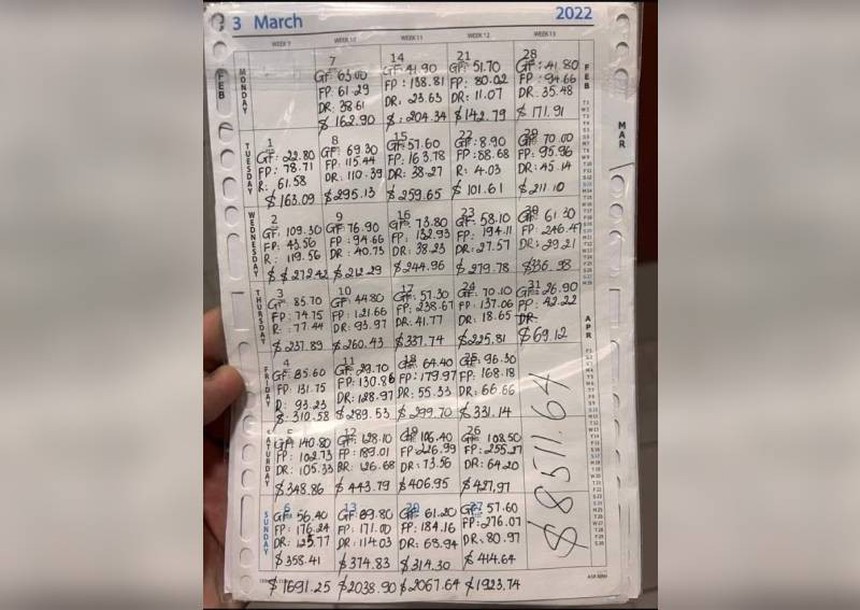 3 March
2022
WEEK 9
WEEK 10
WEEK 11
WEEK 12
WEEK 13
FEB
MONDAY
7
GF: 63.00
FP: 61.29
DR: 38.61
$ 162.90
14
GF: 41.90
FP: 138.81
DR: 23.63
$: 204.34
21
GF: 51.70
FP: 80.02
DR: 11.07
$ 142.79
28
GF: 41.80
FP: 94.66
DR: 35.48
$ 171.91
FEB
MAR
TUESDAY
1
GF: 22.80
FP: 78.71
R: 61.58
$163.09
8
GF: 69.30
FP: 115.44
DR: 110.39
$295.13
15
GF: 57.60
FP: 163.78
DR: 38.27
$259.65
22
GF: 8.90
FP: 88.68
R: 4.03
$ 101.61
29
GF: 70.00
FP: 95.96
DR: 45.14
$ 211.10
WEDNESDAY
2
GF: 109.30
FP: 43.56
R: 119.56
$ $ 272.42
9
GF: 76.90
FP: 94.66
DR: 40.73
$212.29
16
GF: 73.80
FP: 132.93
DR: 38.23
$244.96
23
GF: 58.10
FP: 194.11
DR: 27.57
$279.78
30
GF: 61.30
FP: 246.47
DR: 29.21
$336.98
THURSDAY
3
GF: 85.70
FP: 74.75
R: 77.44
$237.89
10
GF: 44.80
FP: 121.66
DR: 93.97
$260.43
17
GF: 57.30
FP: 238.67
DR: 41.77
$337.74
24
GF: 70.10
FP: 137.06
DR: 18.65
$225.81
31
GF: 26.90
FP: 42.22
DR:
$69.12
APR
FRIDAY
4
GF: 85.60
FP: 131.75
R: 93.23
$: 310.58
11
GF: 29.70
FP: 130.86
DR: 128.97
$289.53
18
GF: 64.40
FP: 179.97
DR: 55.33
$299.70
25
GF: 96.30
FP: 168.18
DR: 66.66
$ 331.14
SATURDAY
5
GF: 140.80
FP: 102.73
DR: 105.33
$348.86
12
GF: 128.10
FP: 189.01
DR: 126.68
$443.79
19
GF: 106.40
FP: 226.99
DR: 73.56
$406.95
26
GF: 108.50
FP: 255.27
DR: 64.20
$427.97
$8511.64
SUNDAY
6
GF: 56.40
FP: 176.24
DR: 125.77
$358.41
13
GF: 89.80
FP: 171.00
DR: 114.03
$374.83
20
GF: 61.20
FP: 184.16
DR: 68.94
$314.30
27
GF: 57.60
FP: 276.07
DR: 80.97
$414.64
$1691.25
$2038.90
$2067.64
$1923.74